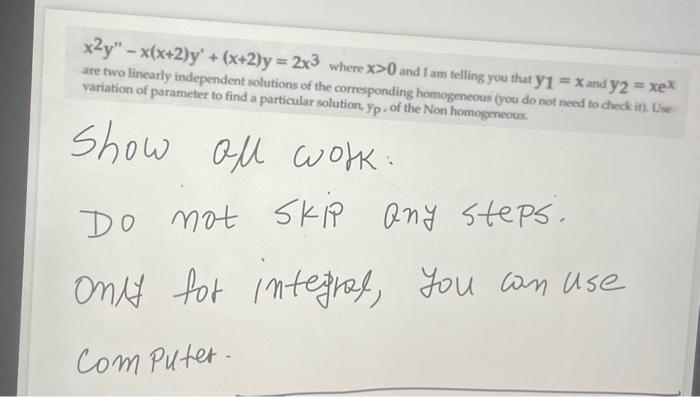 x2y" – x(x+2)y' + (x+2)y = 2x3 where x>0 and I am telling you that y1 = x and y2 = xex
are two linearly independent solutions of the corresponding homogeneous (you do not need to check it). Use
variation of parameter to find a particular solution, yp, of the Non homogeneous.
Show all work.
Do not skip any steps.
only for integral, you can use
computer.